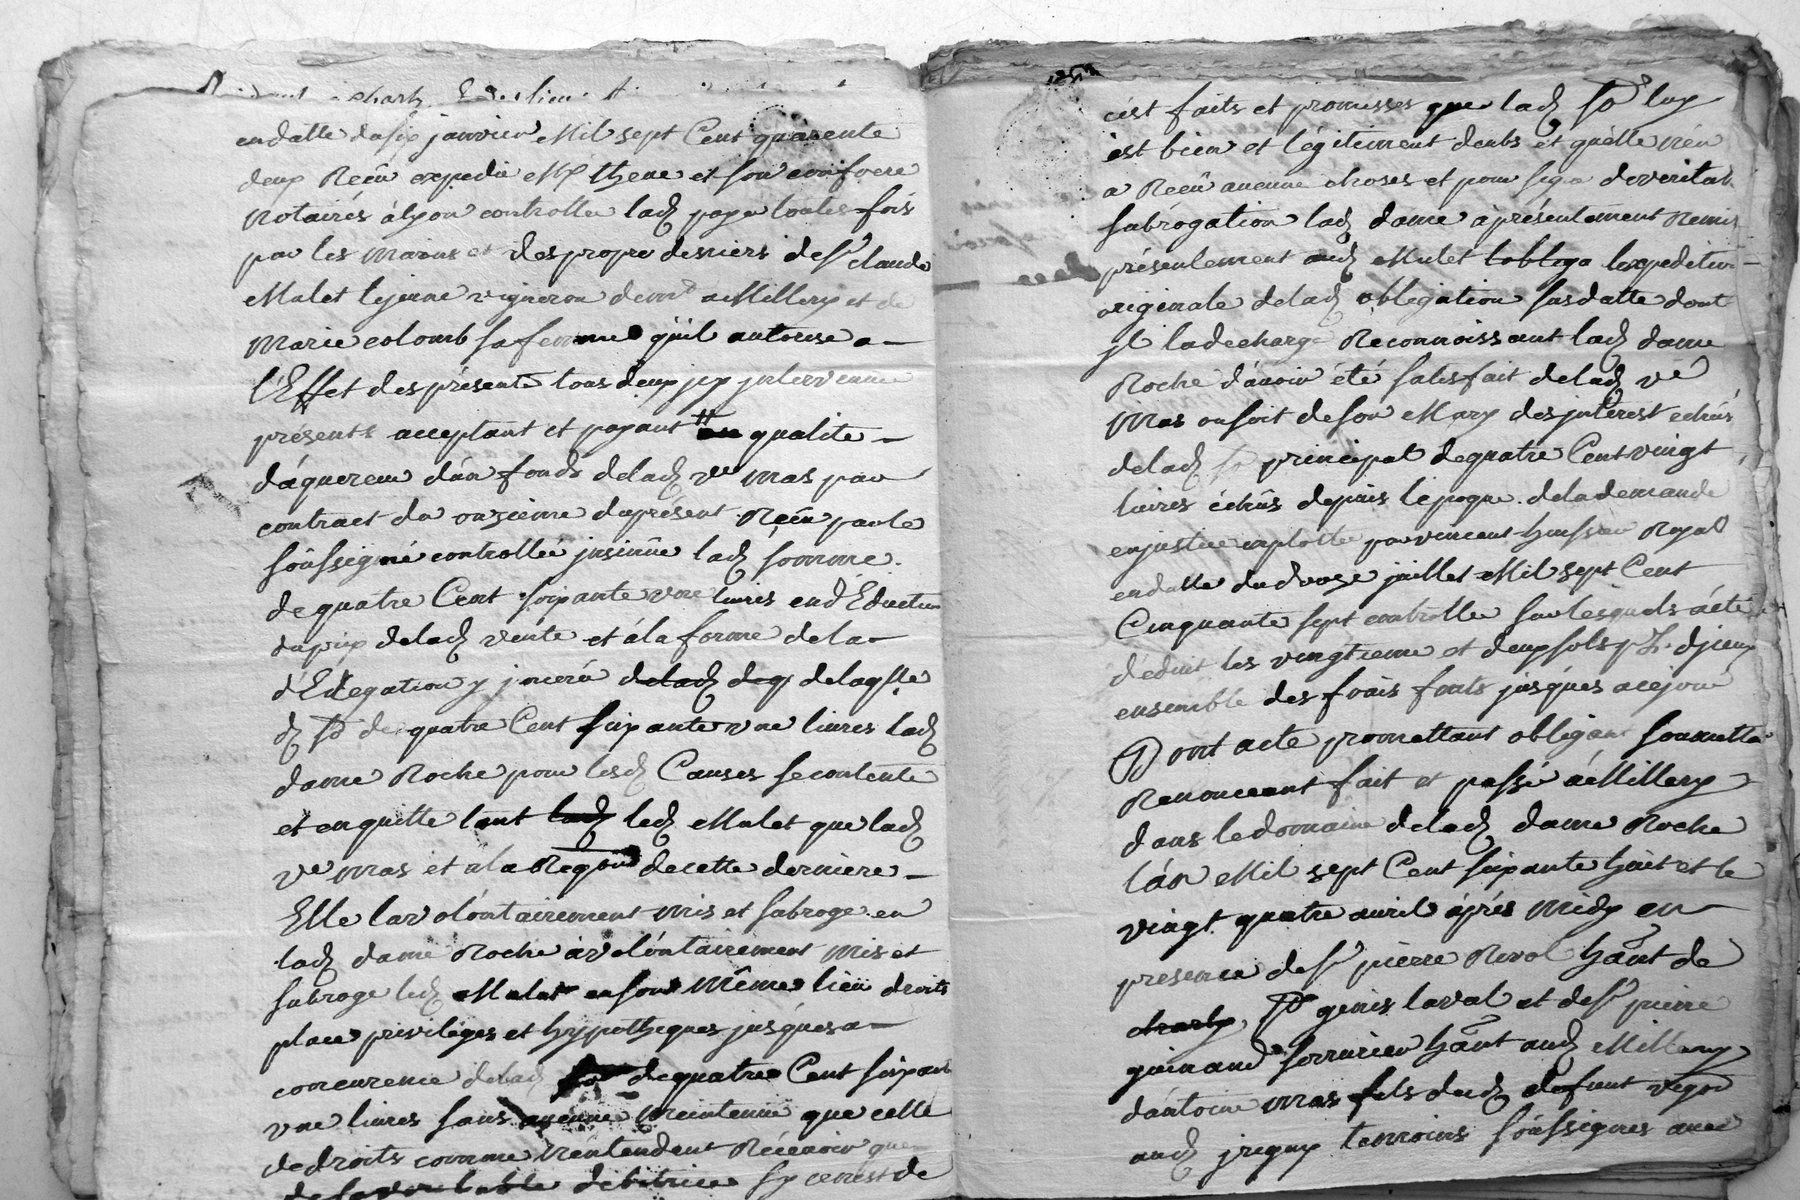 en datte du six janvier Mil sept Cent quarente
deux Reçu expedié Me thene et son confrere
Notaires à lyon controllée lad. payée toutes fois
par les mains et des propre desniers de Sr claude
Mulet lejeune vigneron demt a Millery et de
Marie colomb sa femme qu'il autorise a
l'Effet des présente tous deux jcy jntervenue
présents acceptant et payant en qualité
d'aquereur d'un fonds de lad. ve mas par
contract du onzieme du présent Reçu par le
soussigné controllé jnsinüe lad. somme
de quatre Cent soixante une livres en d'Eduction
du prix de lad. vente et à la forme de la
d'Elegation y jnserée de lad. de q delaqlle
d. So de quatre Cent soixante une livres lad.
dame Roche pour lesd. Causes se contente
et en quitte tant lad. led. Mulet que lad.
ve mas et a la Reqon de cette derniere
Elle la volontairement mis et subroge en
lad. dame Roche a volontairement mis et
subroge led. Mulet en son Même lieu droits
place privileges et hypotheques jusques a
concurence de lad. so de quatre Cent soixante
une livres sans aucune Meintenüe que celle
de droits comme N'entendent Recevoir que
debitrice sy ce n'est de
c'est faits et promesses que lad. So luy
est bien et légitement deubs et quelle n'en
a Reçu aucune choses et pour sig de veritab
subrogation lad. dame à présentement Remis
présentement aud. Mulet l'obliga l'expedition
originale de lad. obligation susdatte dont
jl la decharge Reconnoissant lad. dame
Roche d'avoir été satisfait de lad. ve
Mas ou soit de son Mary des jnterest echûs
de lad. so principal de quatre Cent vingt
livres échûs depuis l'epoque de la demande
en justice exploitte par vincent huissier Royal
en datte du douze juillet Mil sept Cent
Cinquante sept controllé sur lesquels a été
déduit les vingtieme et deux sols p L. d'jceux
ensemble des frais faits jusques a ce jour
Dont acte promettant obligeant soumettan
Renonceant fait et passé à Millery
dans le domaine de lad. dame Roche
l'an Mil sept Cent soixante huit et le
vingt quatre avril après Midy en
presence de Sr pierre Rivol hant de
charly, St genis laval et de Sr pierre
guinand serrurier hant aud. Millery
d'antoine mas fils dud. defunt vigon
aud. jrigny temoins soussignes avec